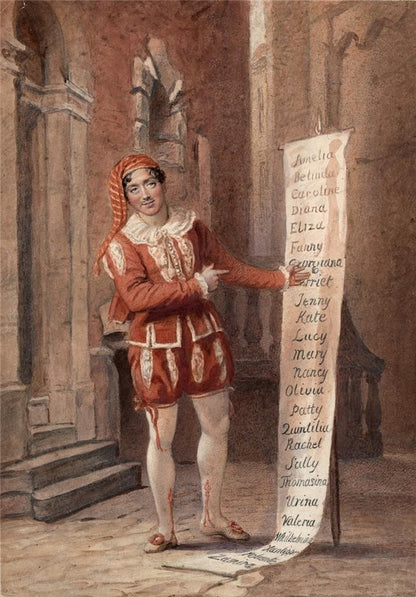 Amelia
Belinda
Caroline
Diana
Eliza
Fanny
Georgiana
Jenny
Kate
Lucy
Mary
Nancy
Olivia
Patty
Quintilia
Rachel
Sally
Thomasina
Urina
Valeria
Wilhelmina